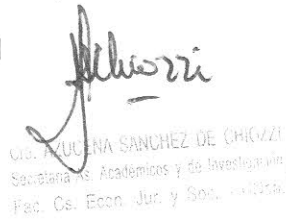 Chiozzi
Cra. AZUCENA SANCHEZ DE CHIOZZI
Secretaria As. Académicos y de Investigación
Fac. Cs. Econ. Jur. y Soc.